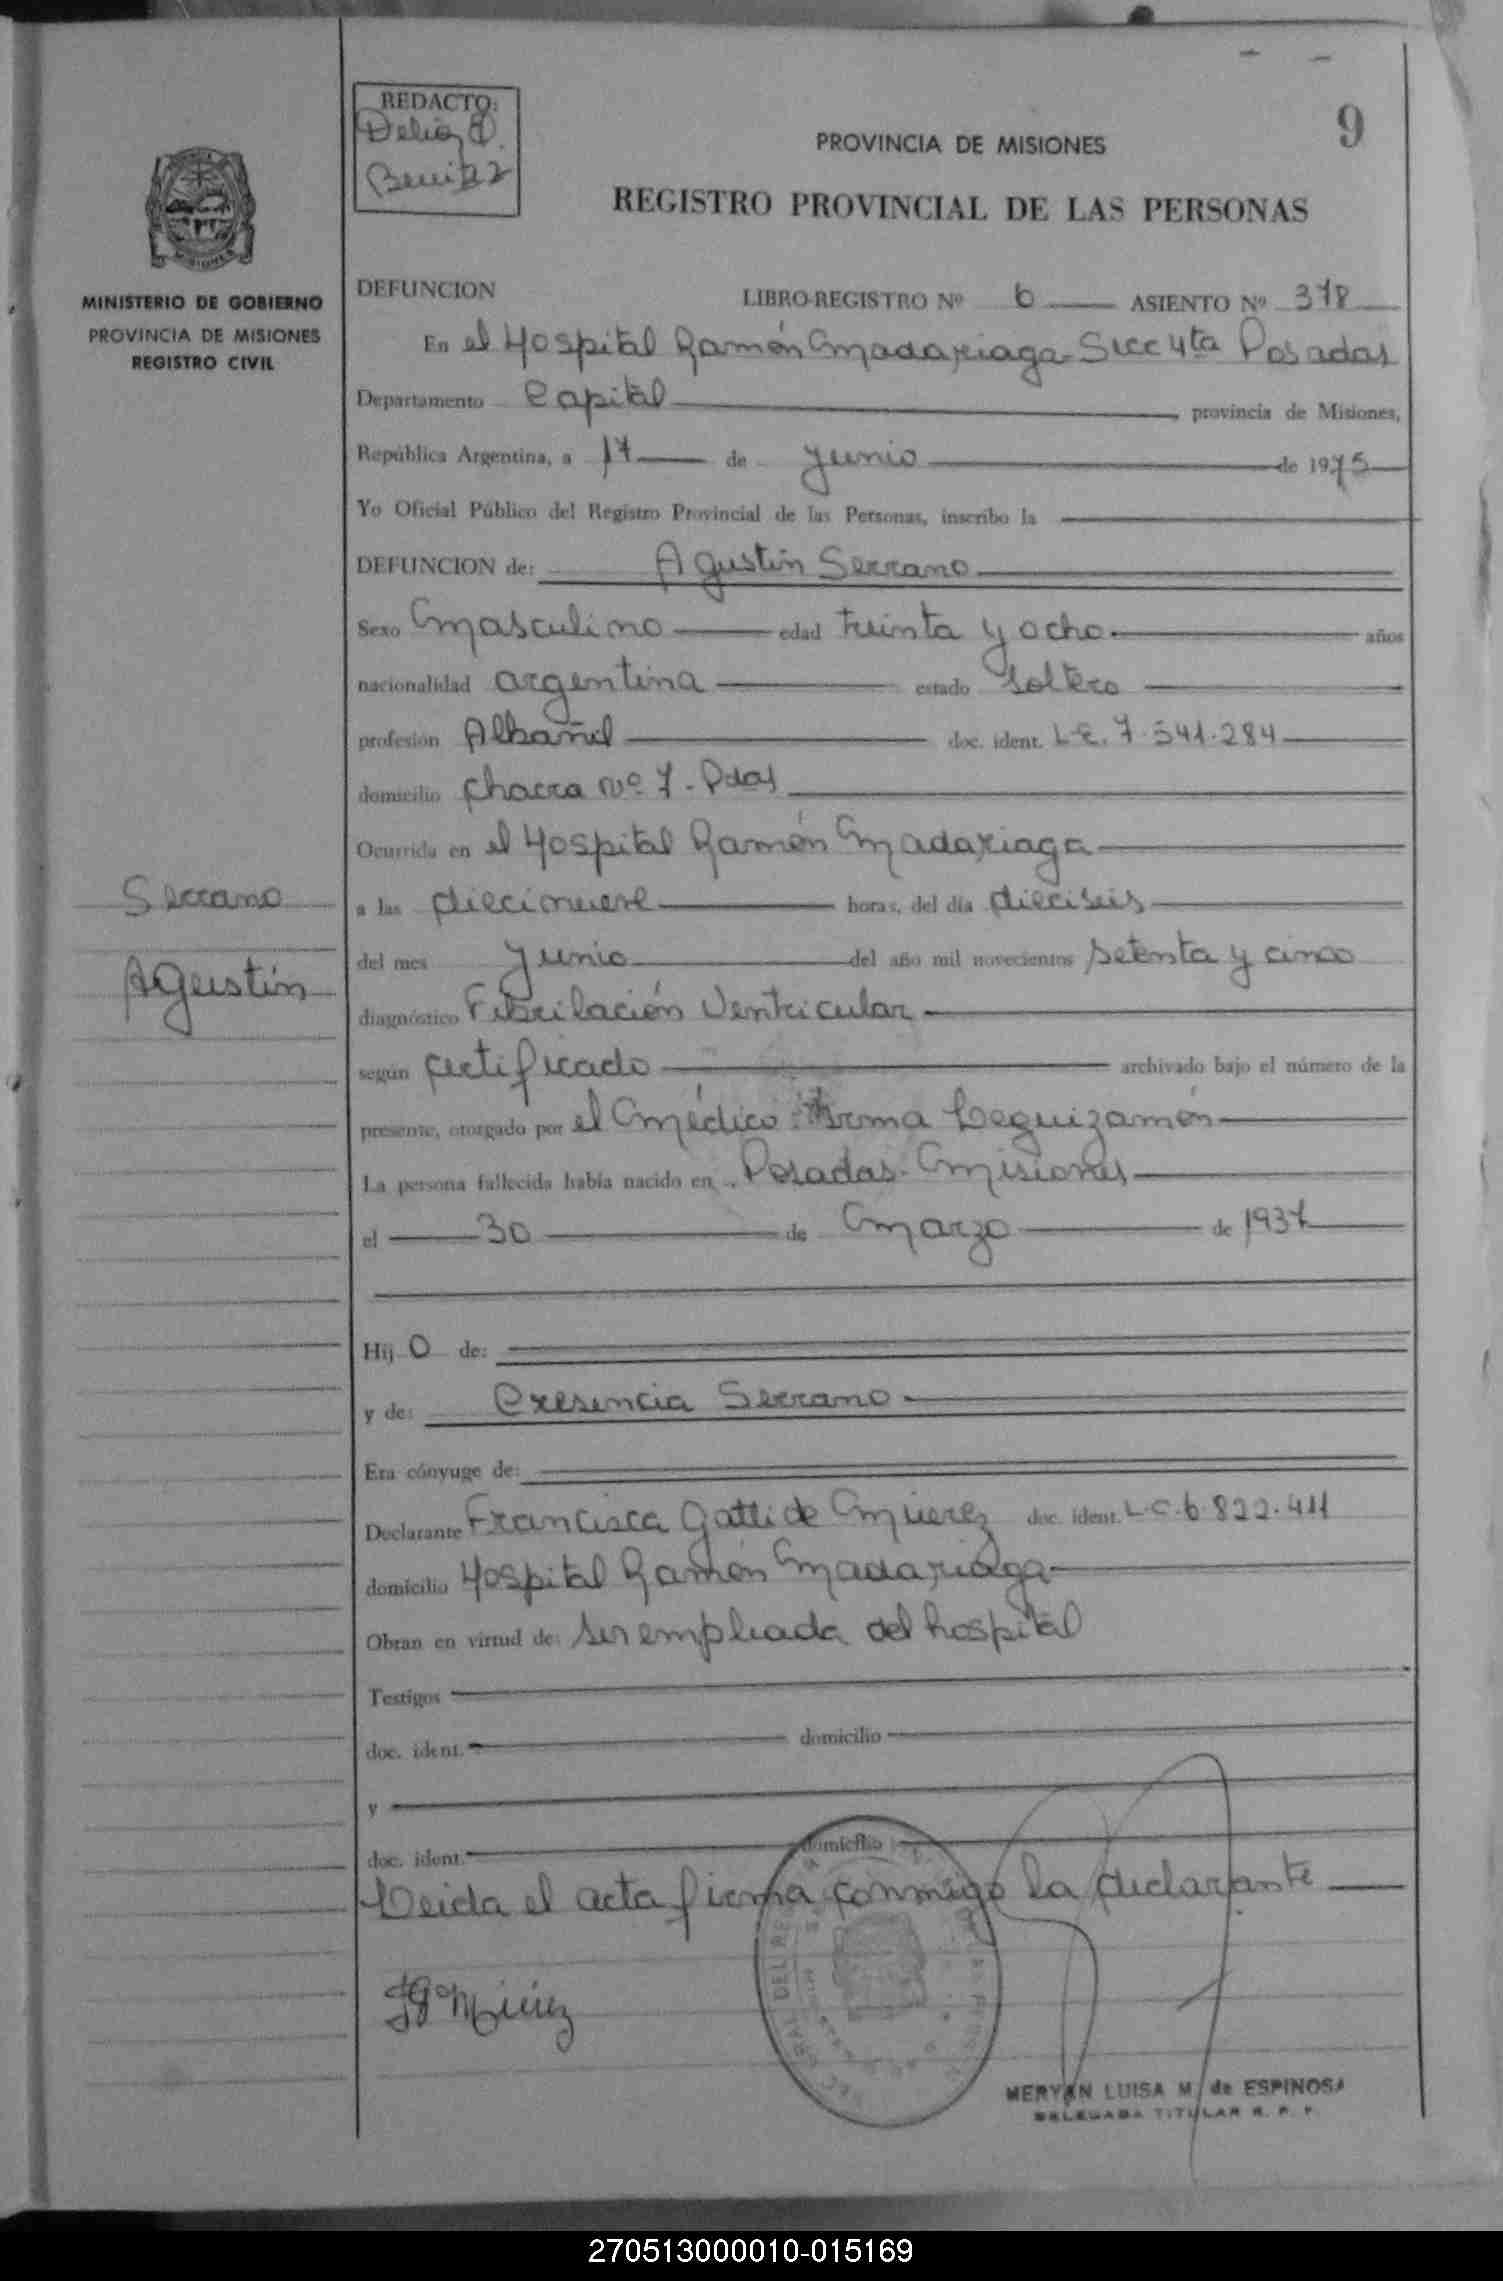 9
REDACTO:
Delia
Benitez
PROVINCIA DE MISIONES
REGISTRO PROVINCIAL DE LAS PERSONAS
MISIONES
MINISTERIO DE GOBIERNO
PROVINCIA DE MISIONES
REGISTRO CIVIL
DEFUNCION LIBRO-REGISTRO Nº 6 ASIENTO Nº 378
En el Hospital Ramón Madariaga-Secc 4ta Posadas
Departamento Capital provincia de Misiones,
República Argentina, a 17 de Junio de 1975
Yo Oficial Público del Registro Provincial de las Personas, inscribo la
DEFUNCION de: Agustín Serrano
Sexo Masculino edad treinta y ocho años
nacionalidad argentina estado soltero
profesión Albañil doc. ident. L-E. 7.541.284
domicilio chacra nº 7- Pdas
Ocurrida en el Hospital Ramón Madariaga
a las diecinueve horas, del día dieciseis
del mes Junio del año mil novecientos setenta y cinco
diagnóstico Fibrilación Ventricular
según certificado archivado bajo el número de la
presente, otorgado por el Médico: Irma Leguizamón
La persona fallecida había nacido en Posadas-Misiones
el 30 de Marzo de 1937
Serrano
Agustín
Hij o de:
y de: Cresencia Serrano
Era cónyuge de:
Declarante Francisca Gatti de Mierez doc. ident. L-C-6.822.411
domicilio Hospital Ramón Madariaga
Obran en virtud de: ser empleada del hospital
Testigos
doc. ident. domicilio
y
doc. ident. domicilio
Leida el acta firma conmigo la declarante
MERYAN LUISA M. de ESPINOSA
DELEGADA TITULAR R. P. P.
270513000010-015169